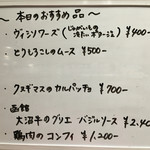 ~本日のおすすめ品~
・ヴィシソワーズ(じゃがいもの冷たいポタージュ) ¥400-
・とうもろこしのムース ¥500-
・クスギマスのカルパッチョ ¥700-
函館
・大沼牛のグリエ バジルソース ¥2,40
・鶏肉のコンフィ ¥1,200-